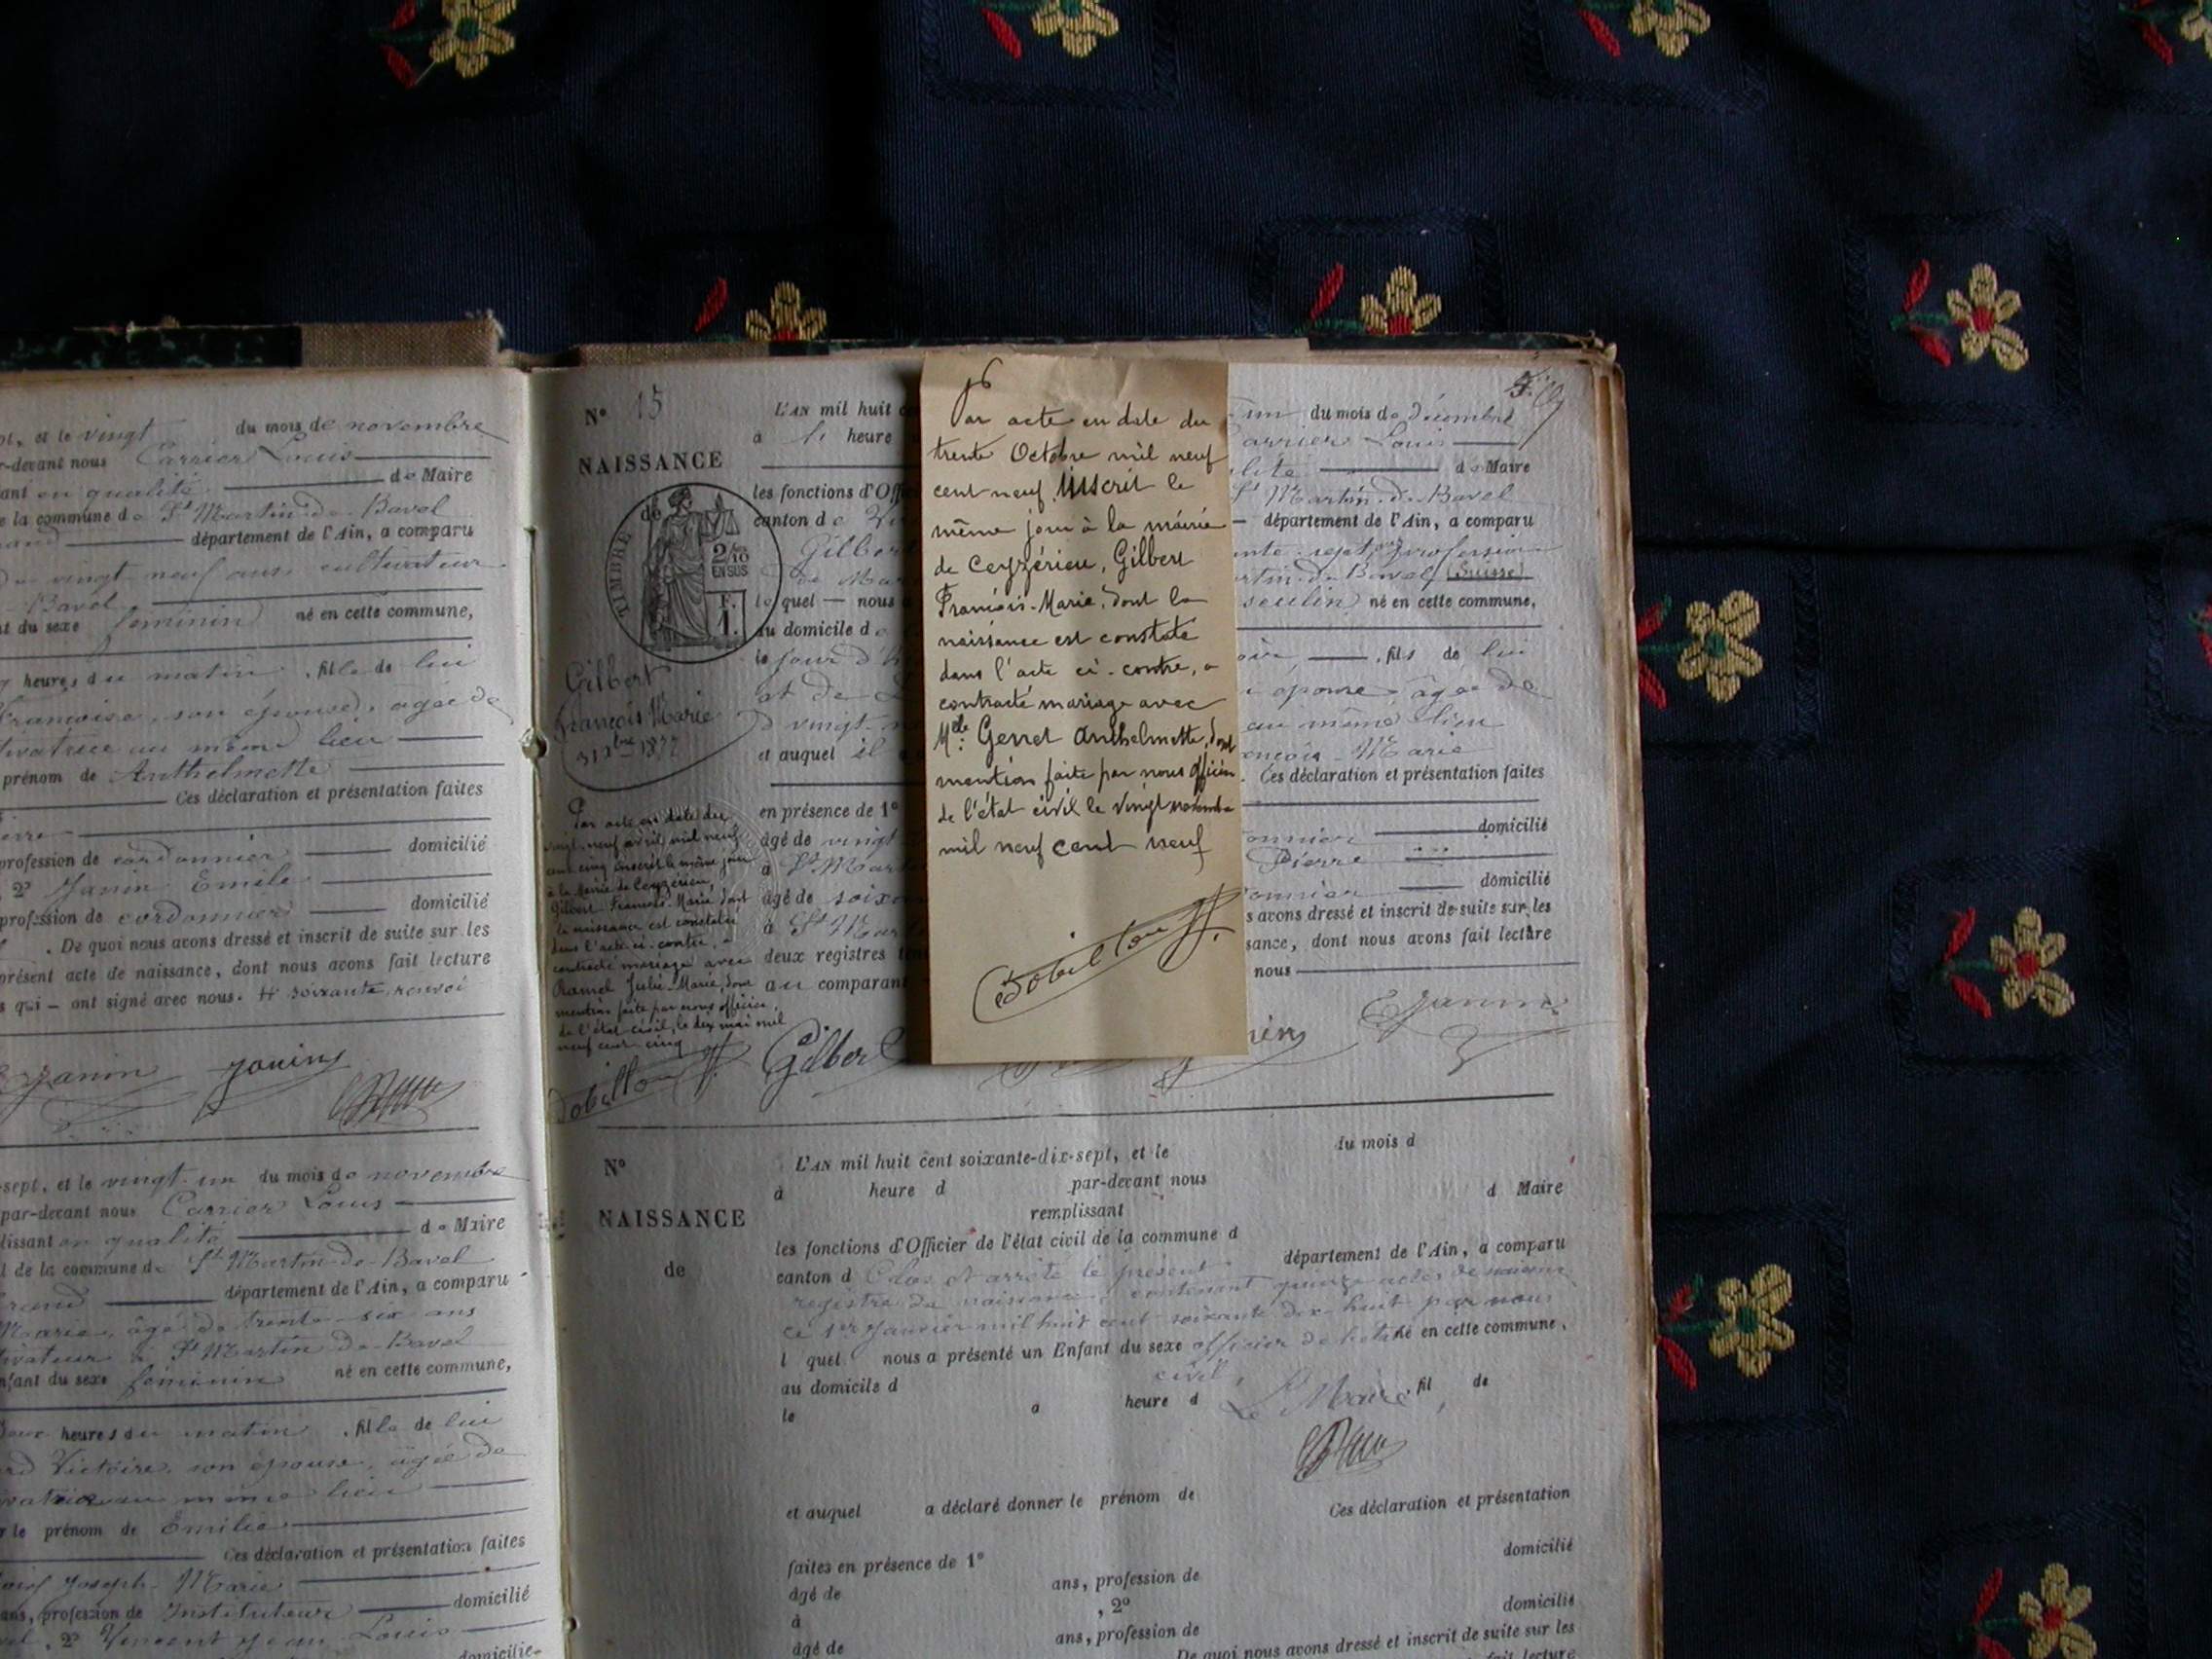 et le vingt du mois de novembre
par-devant nous Carrier Louis
en qualité de Maire
de la commune de St Martin-de-Bavel
département de l'Ain, a comparu
vingt-neuf ans cultivateur
Bavel
du sexe féminin né en cette commune,
heures du matin, fille de lui
Françoise, son épouse, âgée de
au même lieu
prénom de Anthelmette
Ces déclaration et présentation faites
profession de cordonnier domicilié
2° Janin Emile
profession de cordonnier domicilié
. De quoi nous avons dressé et inscrit de suite sur les
présent acte de naissance, dont nous avons fait lecture
qui — ont signé avec nous.
Janin
sept, et le vingt-un du mois de novembre
par-devant nous Carrier Louis
en qualité de Maire
de la commune de St Martin-de-Bavel
département de l'Ain, a comparu
Marie, âgé de trente-six ans
à St Martin-de-Bavel
du sexe féminin né en cette commune,
heures du matin, fille de lui
Victoire, son épouse, âgée de
même lieu
le prénom de Emilie
Ces déclaration et présentation faites
Joseph-Marie
ans, profession de Instituteur domicilié
2° Vincent Jean Louis
domicilié
N° 15
NAISSANCE
de
TIMBRE
2/10
EN SUS
F.
1.
Gilbert
François Marie
31 Xbre 1877
Par acte en date du
vingt-neuf avril mil neuf
cent cinq inscrit le même jour
à la Mairie de Ceyzérieu,
Gilbert François-Marie dont
la naissance est constatée
dans l'acte ci-contre, a
contracté mariage avec
Ramel Julie-Marie, dont
mention faite par nous officier
de l'état civil, le dix mai mil
neuf cent cinq
Bobillon
L'AN mil huit
à heure
les fonctions d'Off
canton de
Gilbert
lequel — nous
au domicile de
le jour
et de
vingt
et auquel il
en présence de 1°
âgé de vingt
à St Mar
âgé de soix
à St Mar
deux registres
au comparant
Gilbert
Par acte en date du
trente Octobre mil neuf
cent neuf inscrit le
même jour à la mairie
de Ceyzérieu, Gilbert
François-Marie, dont la
naissance est constatée
dans l'acte ci-contre, a
contracté mariage avec
Mlle Genret Anthelmette, dont
mention faite par nous officier
de l'état civil le vingt novembre
mil neuf cent neuf
Bobillon
un du mois de décembre
Carrier Louis
de Maire
St Martin-de-Bavel
département de l'Ain, a comparu
sept, profession
Bavel (Suisse)
né en cette commune,
, fils de lui
épouse, âgée de
au même lieu
Marie
Ces déclaration et présentation faites
domicilié
Pierre
domicilié
s avons dressé et inscrit de suite sur les
sance, dont nous avons fait lecture
nous
EJanin
N°
NAISSANCE
de
L'AN mil huit cent soixante-dix-sept, et le du mois d
à heure d par-devant nous
remplissant d Maire
les fonctions d'Officier de l'état civil de la commune d
canton d département de l'Ain, a comparu
Clos et arrêté le présent
registre de naissance, contenant quinze actes de naissance
ce 1er Janvier mil huit cent soixante dix-huit par nous
officier de l'état
civil,
l quel nous a présenté un Enfant du sexe né en cette commune,
au domicile d
le à heure d , fil de
Le Maire
et auquel a déclaré donner le prénom de
Ces déclaration et présentation
faites en présence de 1° domicilié
âgé de ans, profession de
à , 2° domicilié
âgé de ans, profession de
De quoi nous avons dressé et inscrit de suite sur les
fait lecture